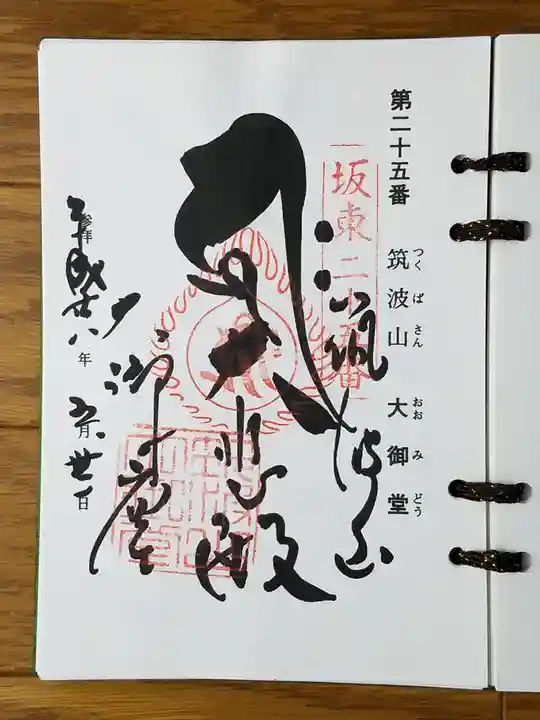 第二十五番 筑波山 大御堂
つくばさん おおみどう
坂東二十五番
筑波山
大悲殿
大御堂
参拝
平成廿八年 五月廿日